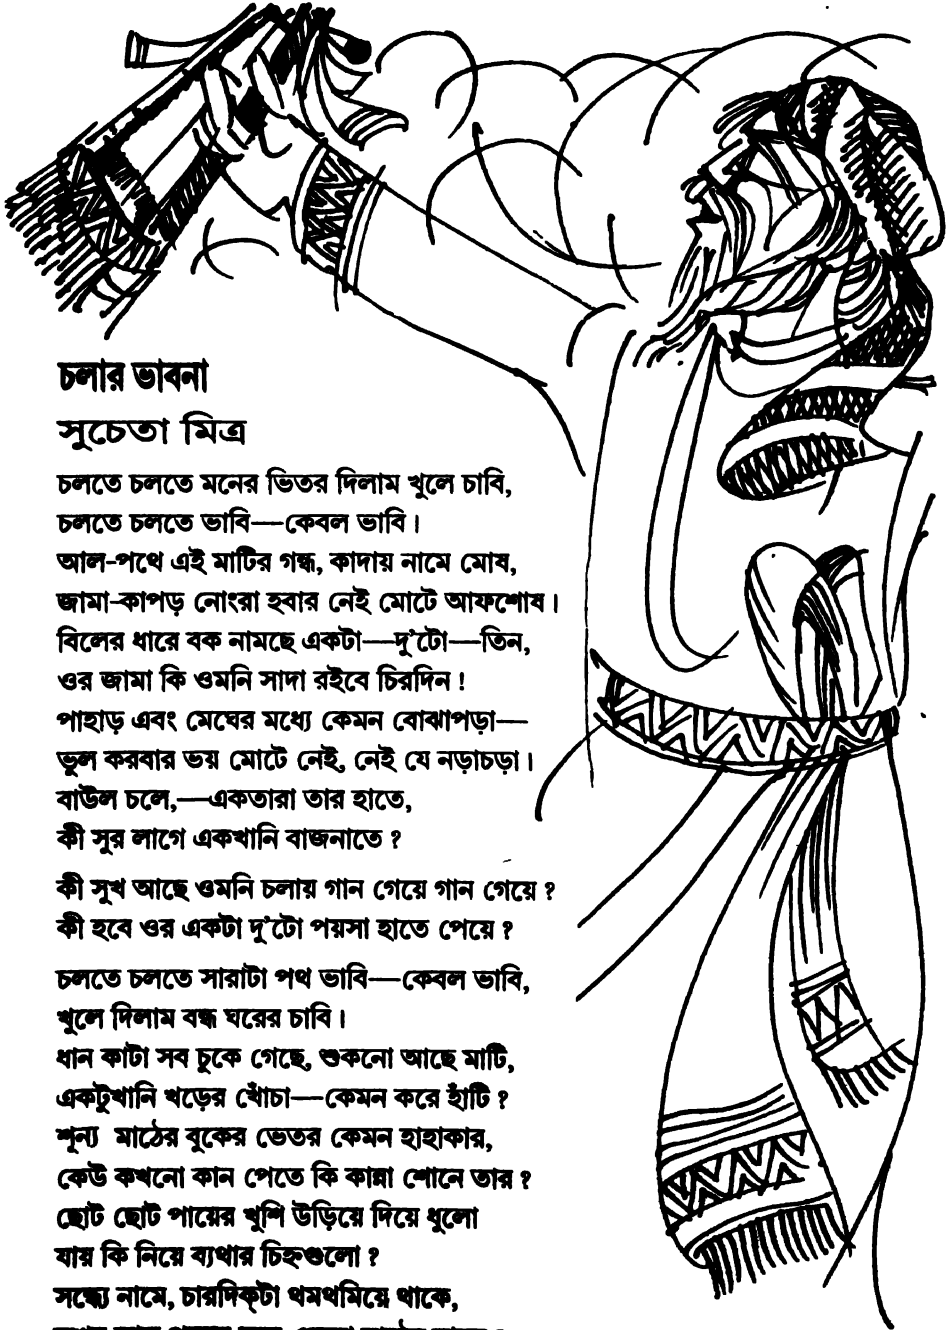 চলার ভাবনা
সুচেতা মিত্র
চলতে চলতে মনের ভিতর দিলাম খুলে চাবি,
চলতে চলতে ভাবি—কেবল ভাবি।
আল-পথে এই মাটির গন্ধ, কাদায় নামে মোষ,
জামা-কাপড় নোংরা হবার নেই মোটে আফশোষ।
বিলের ধারে বক নামছে একটা—দু'টো—তিন,
ওর জামা কি ওমনি সাদা রইবে চিরদিন!
পাহাড় এবং মেঘের মধ্যে কেমন বোঝাপড়া—
ভুল করবার ভয় মোটে নেই, নেই যে নড়াচড়া।
বাউল চলে,—একতারা তার হাতে,
কী সুর লাগে একখানি বাজনাতে?
কী সুখ আছে ওমনি চলায় গান গেয়ে গান গেয়ে?
কী হবে ওর একটা দু'টো পয়সা হাতে পেয়ে?
চলতে চলতে সারাটা পথ ভাবি—কেবল ভাবি,
খুলে দিলাম বন্ধ ঘরের চাবি।
ধান কাটা সব চুকে গেছে, শুকনো আছে মাটি,
একটুখানি খড়ের খোঁচা—কেমন করে হাঁটি?
শূন্য মাঠের বুকের ভেতর কেমন হাহাকার,
কেউ কখনো কান পেতে কি কান্না শোনে তার?
ছোট ছোট পায়ের খুশি উড়িয়ে দিয়ে ধুলো
যায় কি নিয়ে ব্যথার চিহ্নগুলো?
সন্ধ্যে নামে, চারদিক্‌টা থমথমিয়ে থাকে,